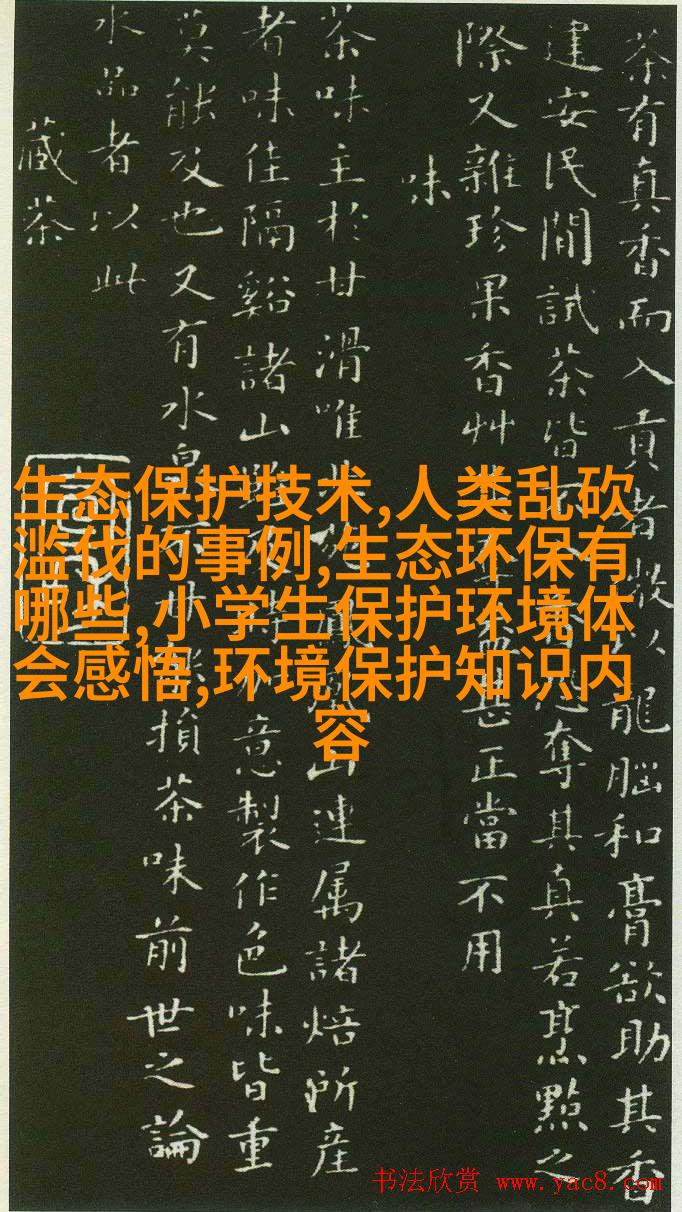 茶有真香而入貢者微以龍腦和膏欲助其香
建安民間試茶皆不入香恐奪其真若烹點之
際又雜珍果香艸其奪益甚正當不用
味
茶味主於甘滑唯北苑鳳凰山連属諸焙所産
者味佳隔谿諸山雖及時加意製作色味皆重
莫能及也又有水泉不甘能損茶味前世之論
水品者以此
藏茶
生态保护技术,人类乱砍
滥伐的事例,生态环保有
哪些,小学生保护环境体
会感悟,环境保护知识内
容
书法欣赏 www.yac8.com